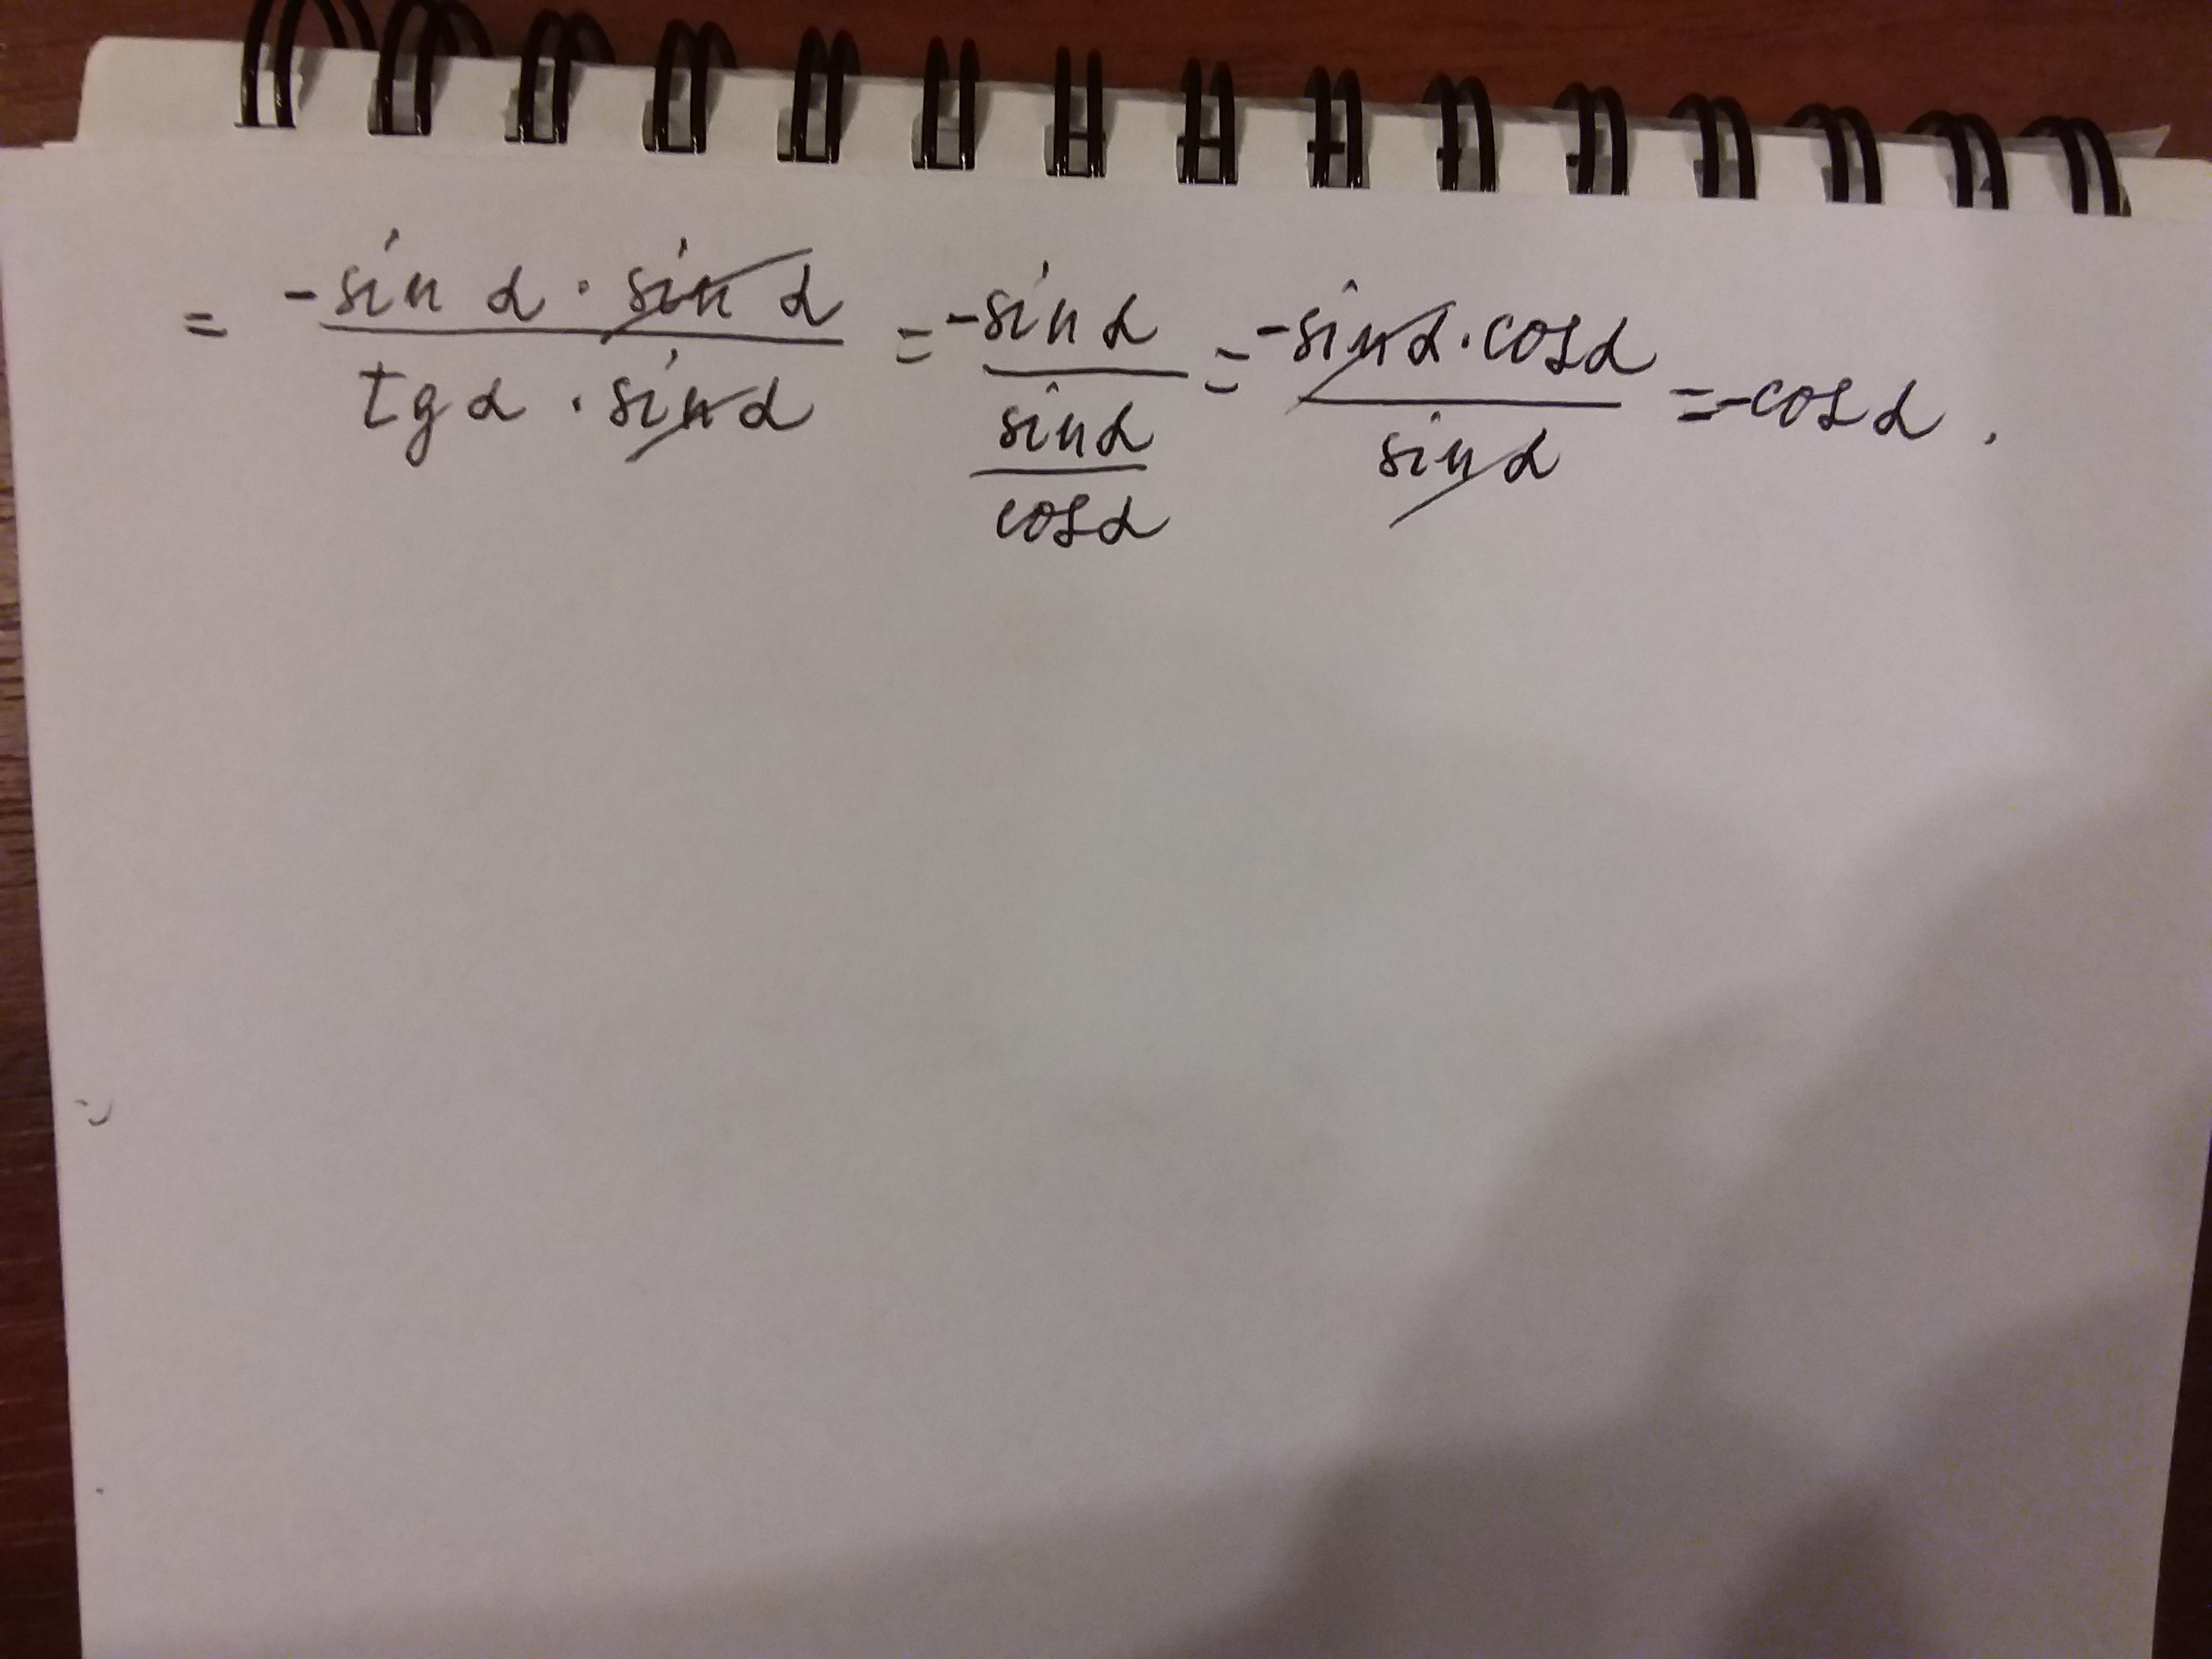 = -sin α · sin α / tg α · sin α = -sin α / sin α / cos α = -sin α · cos α / sin α = -cos α.